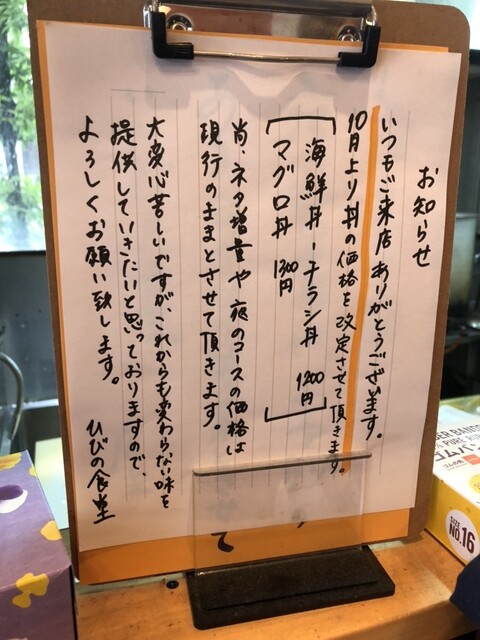 お知らせ
いつもご来店ありがとうございます。
10月より丼の価格を改定させて頂きます。
海鮮丼・チラシ丼 1200円
マグロ丼 1300円
尚、ネタ増量や夜のコースの価格は
現行のままとさせて頂きます。
大変心苦しいですが、これからも変わらない味を
提供していきたいと思っておりますので、
よろしくお願い致します。
ひびの食堂
て
BER BAND
PURE RUB
ゴムバン
SIZE
No.16